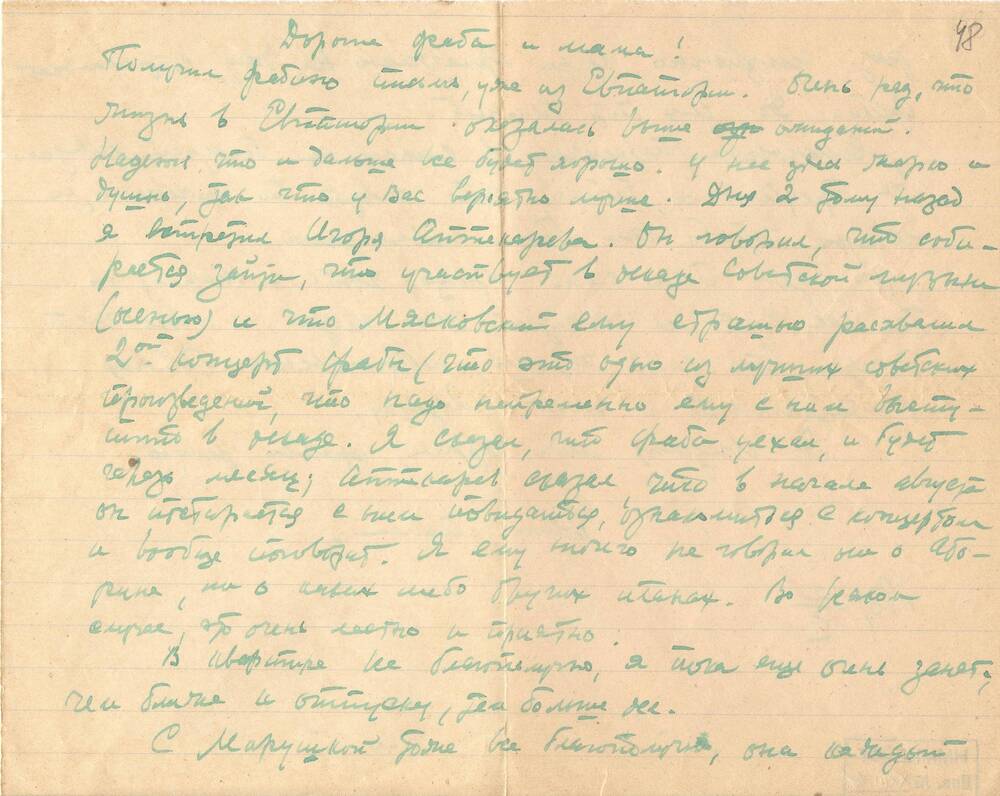 48
Дорогие фаба и мама!
Получил фабино письмо, уже из Евпатории. Очень рад, что
жизнь в Евпатории оказалась выше ожиданий.
Надеюсь что и дальше все будет хорошо. У нас здесь жарко и
душно, так что у Вас вероятно лучше. Дня 2 тому назад
я встретил Игоря Аптекарева. Он говорил, что соби-
рается зайти, что участвует в декаде советской музыки
(осенью) и что Мясковский ему страшно расхвалил
2ой концерт фабы (что это одно из лучших советских
произведений, что надо непременно ему с ним высту-
пить в декаде. Я сказал, что фаба уехал, и будет
через месяц; Аптекарев сказал, что в начале августа
он постарается с ним повидаться, ознакомиться с концертом
и вообще поговорит. Я ему ничего не говорил ни о Або-
рине, ни о каких либо других планах. Во всяком
случае, это очень лестно и приятно.
В квартире все благополучно, я пока еще очень занят;
чем ближе к отпуску, тем больше дел.
С Марушкой тоже все благополучно, она каждый